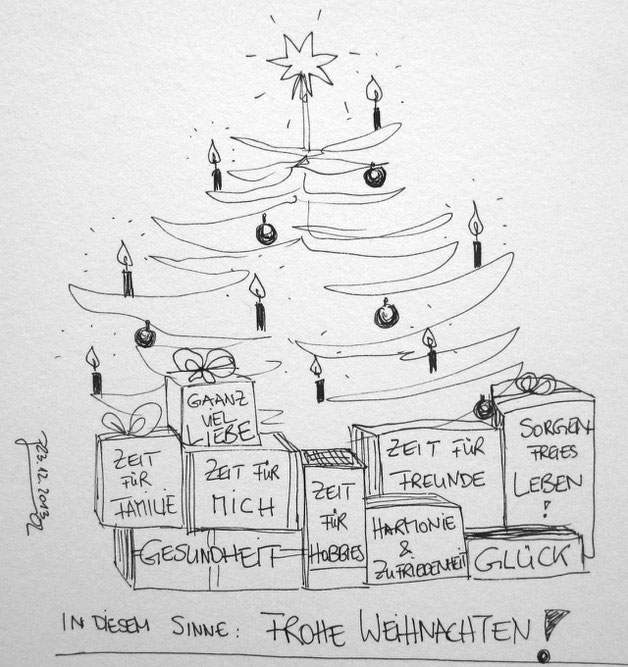 GAANZ
VIEL
LIEBE
ZEIT
FÜR
FAMILIE
ZEIT FÜR
MICH
GESUNDHEIT
ZEIT
FÜR
HOBBIES
ZEIT FÜR
FREUNDE
HARMONIE
&
ZUFRIEDENHEIT
SORGEN-
FREIES
LEBEN
!
GLÜCK
23.12.2013
IN DIESEM SINNE: FROHE WEIHNACHTEN!